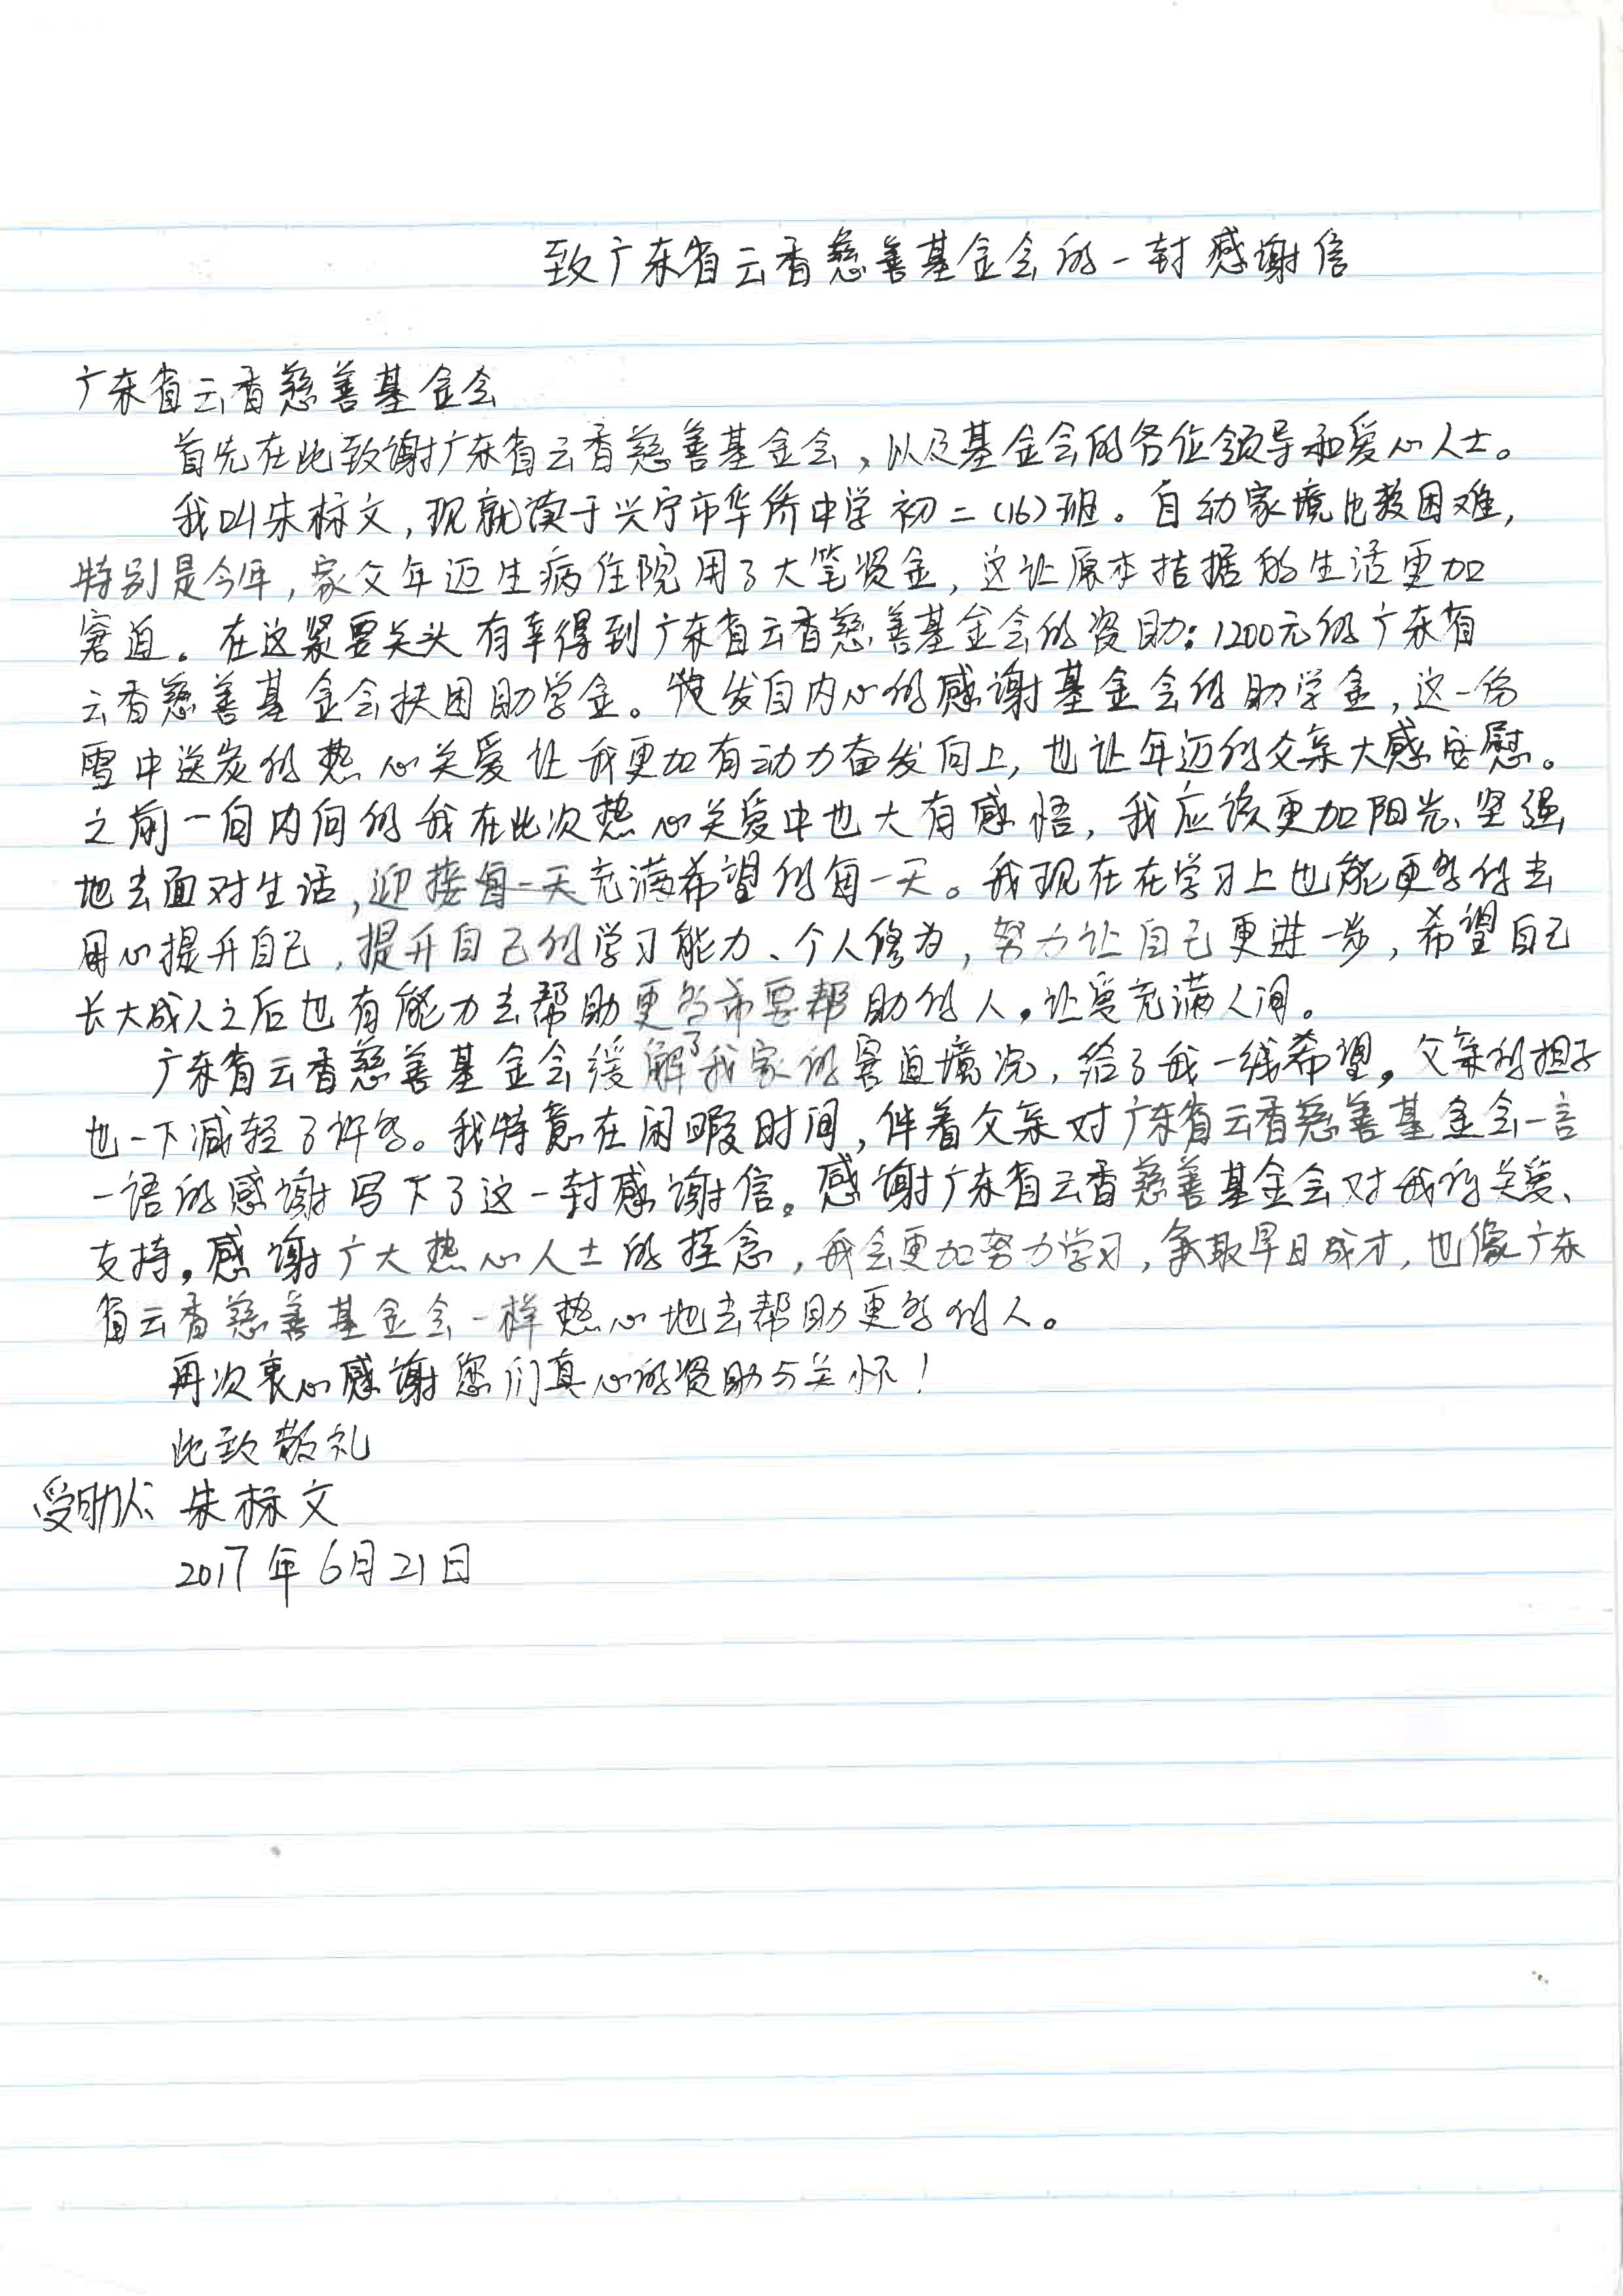 致广东省云香慈善基金会的一封感谢信
广东省云香慈善基金会
首先在此致谢广东省云香慈善基金会，以及基金会的各位领导和爱心人士。
我叫朱标文，现就读于兴宁市华侨中学初二（16）班。自幼家境比较困难，
特别是今年，家父年迈生病住院用了大笔资金，这让原本拮据的生活更加
窘迫。在这紧要关头有幸得到广东省云香慈善基金会的资助：1200元的广东省
云香慈善基金会扶困助学金。发自内心的感谢基金会的助学金，这一份
雪中送炭的热心关爱让我更加有动力奋发向上，也让年迈的父亲大感安慰。
之前一向内向的我在此次热心关爱中也大有感悟，我应该更加阳光、坚强
地去面对生活，迎接每一天充满希望的每一天。我现在在学习上也能更多的去
用心提升自己，提升自己的学习能力、个人修为，努力让自己更进一步，希望自己
长大成人之后也有能力去帮助更多需要帮助的人。让爱充满人间。
广东省云香慈善基金会缓解了我家的窘迫境况，给了我一线希望。父亲的担子
也一下减轻了许多。我特意在闲暇时间，伴着父亲对广东省云香慈善基金会一言
一语的感谢写下了这一封感谢信。感谢广东省云香慈善基金会对我的关爱、
支持。感谢广大热心人士的挂念，我会更加努力学习，争取早日成才，也像广东
省云香慈善基金会一样热心地去帮助更多的人。
再次衷心感谢您们真心的资助与关怀！
此致敬礼
受助人：朱标文
2017年6月21日